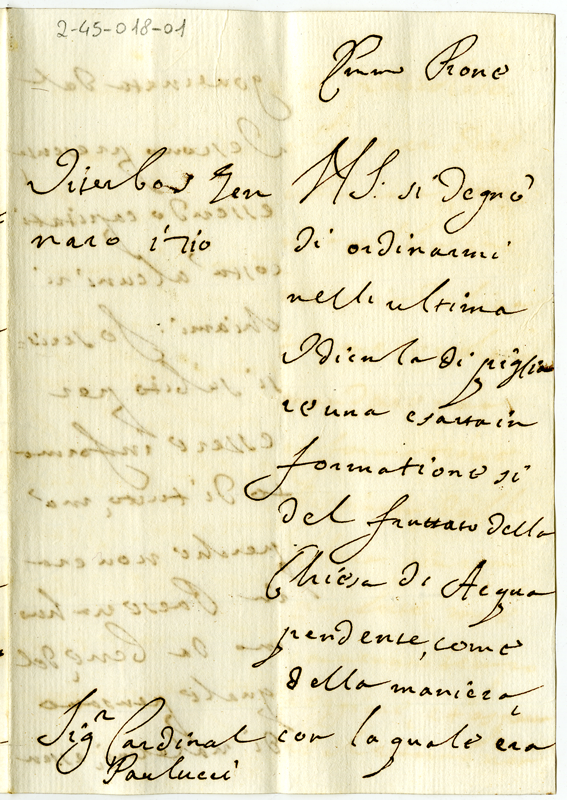 2-45-018-01
Emm̃o Prone
Viterbo 5 Gen
naro 1710
N S: si degnò
di ordinarmi
nelli ultima
Udienza di piglia
re una esatta in
formatione si
del fruttato della
Chiesa di Acqua
pendente, come
della maniera,
con la quale era
Sigr Cardinal
Paulucci